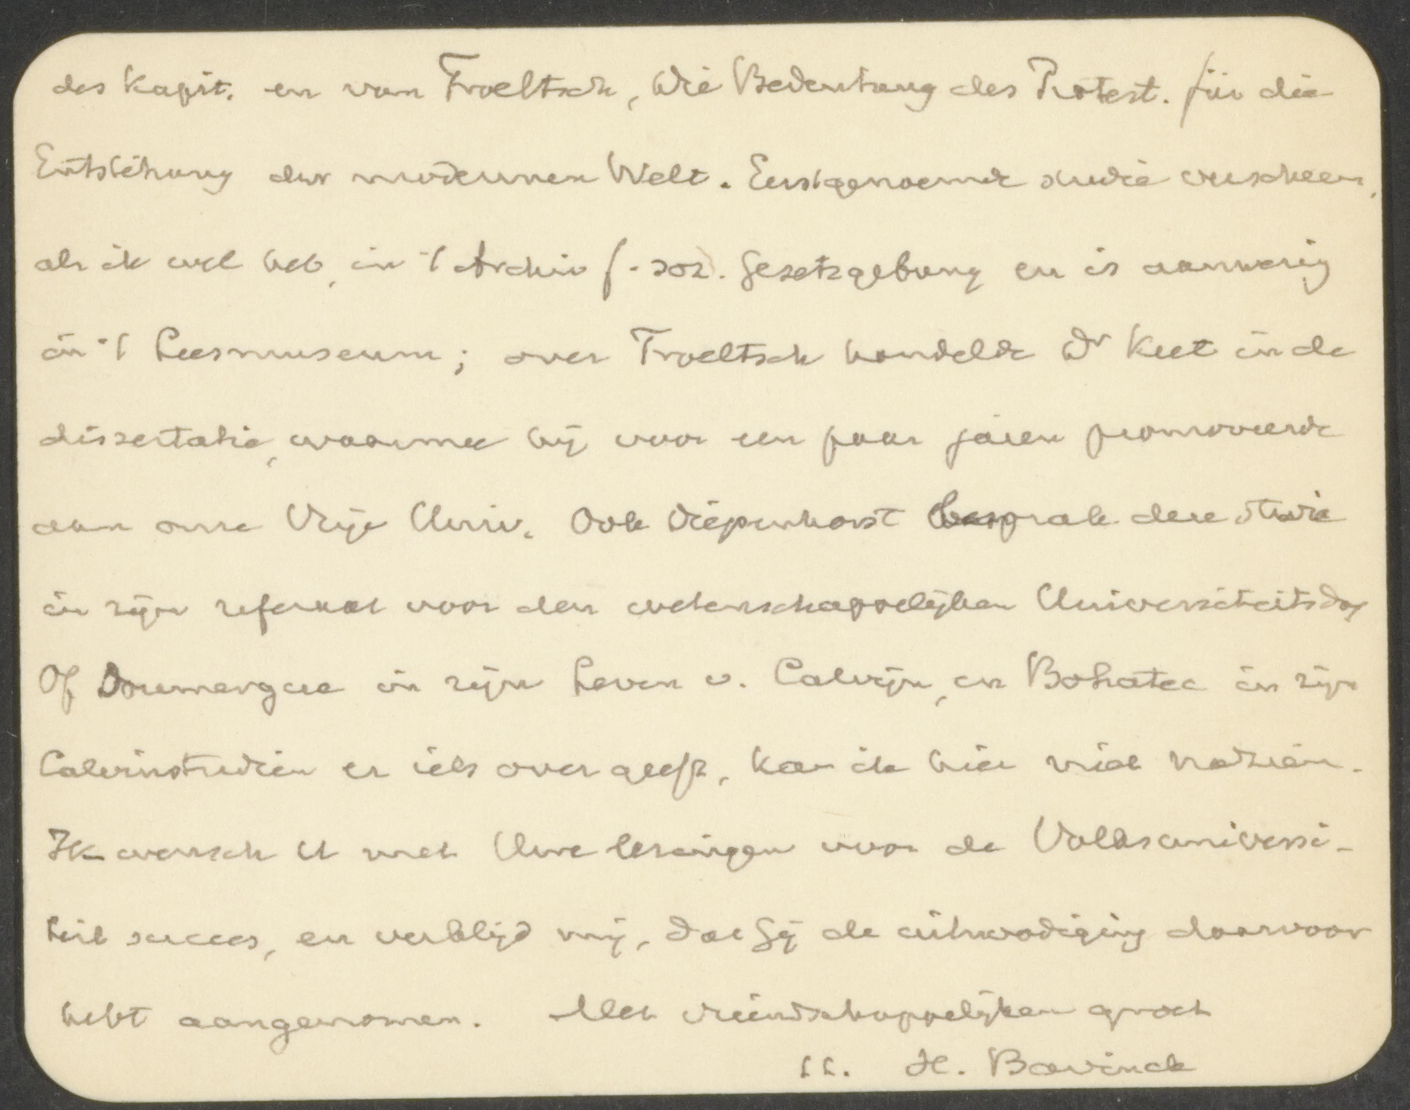 des Kapit. en van Troeltsch, Die Bedeutung des Protest. für die
Entstehung der modernen Welt. Eerstgenoemde studie verscheen,
als ik wel heb, in 't Archiv f. soz. Gesetzgebung en is aanwezig
in 't Leesmuseum; over Troeltsch handelde Dr Keet in de
dissertatie, waarmee hij voor een paar jaren promoveerde
aan onze Vrije Univ. Ook Diepenhorst besprak deze studie
in zijn referaat voor den wetenschappelijken Universiteitsdag
Of Doumergue in zijn Leven v. Calvijn, en Bohatec in zijn
Calvinstudien er iets over geeft, kan ik hier niet nazien.
Ik wensch U met Uwe lezingen voor de Volksuniversi-
teit succes, en verblijd mij, dat Gij de uitnoodiging daarvoor
hebt aangenomen. Met vriendschappelijken groet
t.t. H. Bavinck